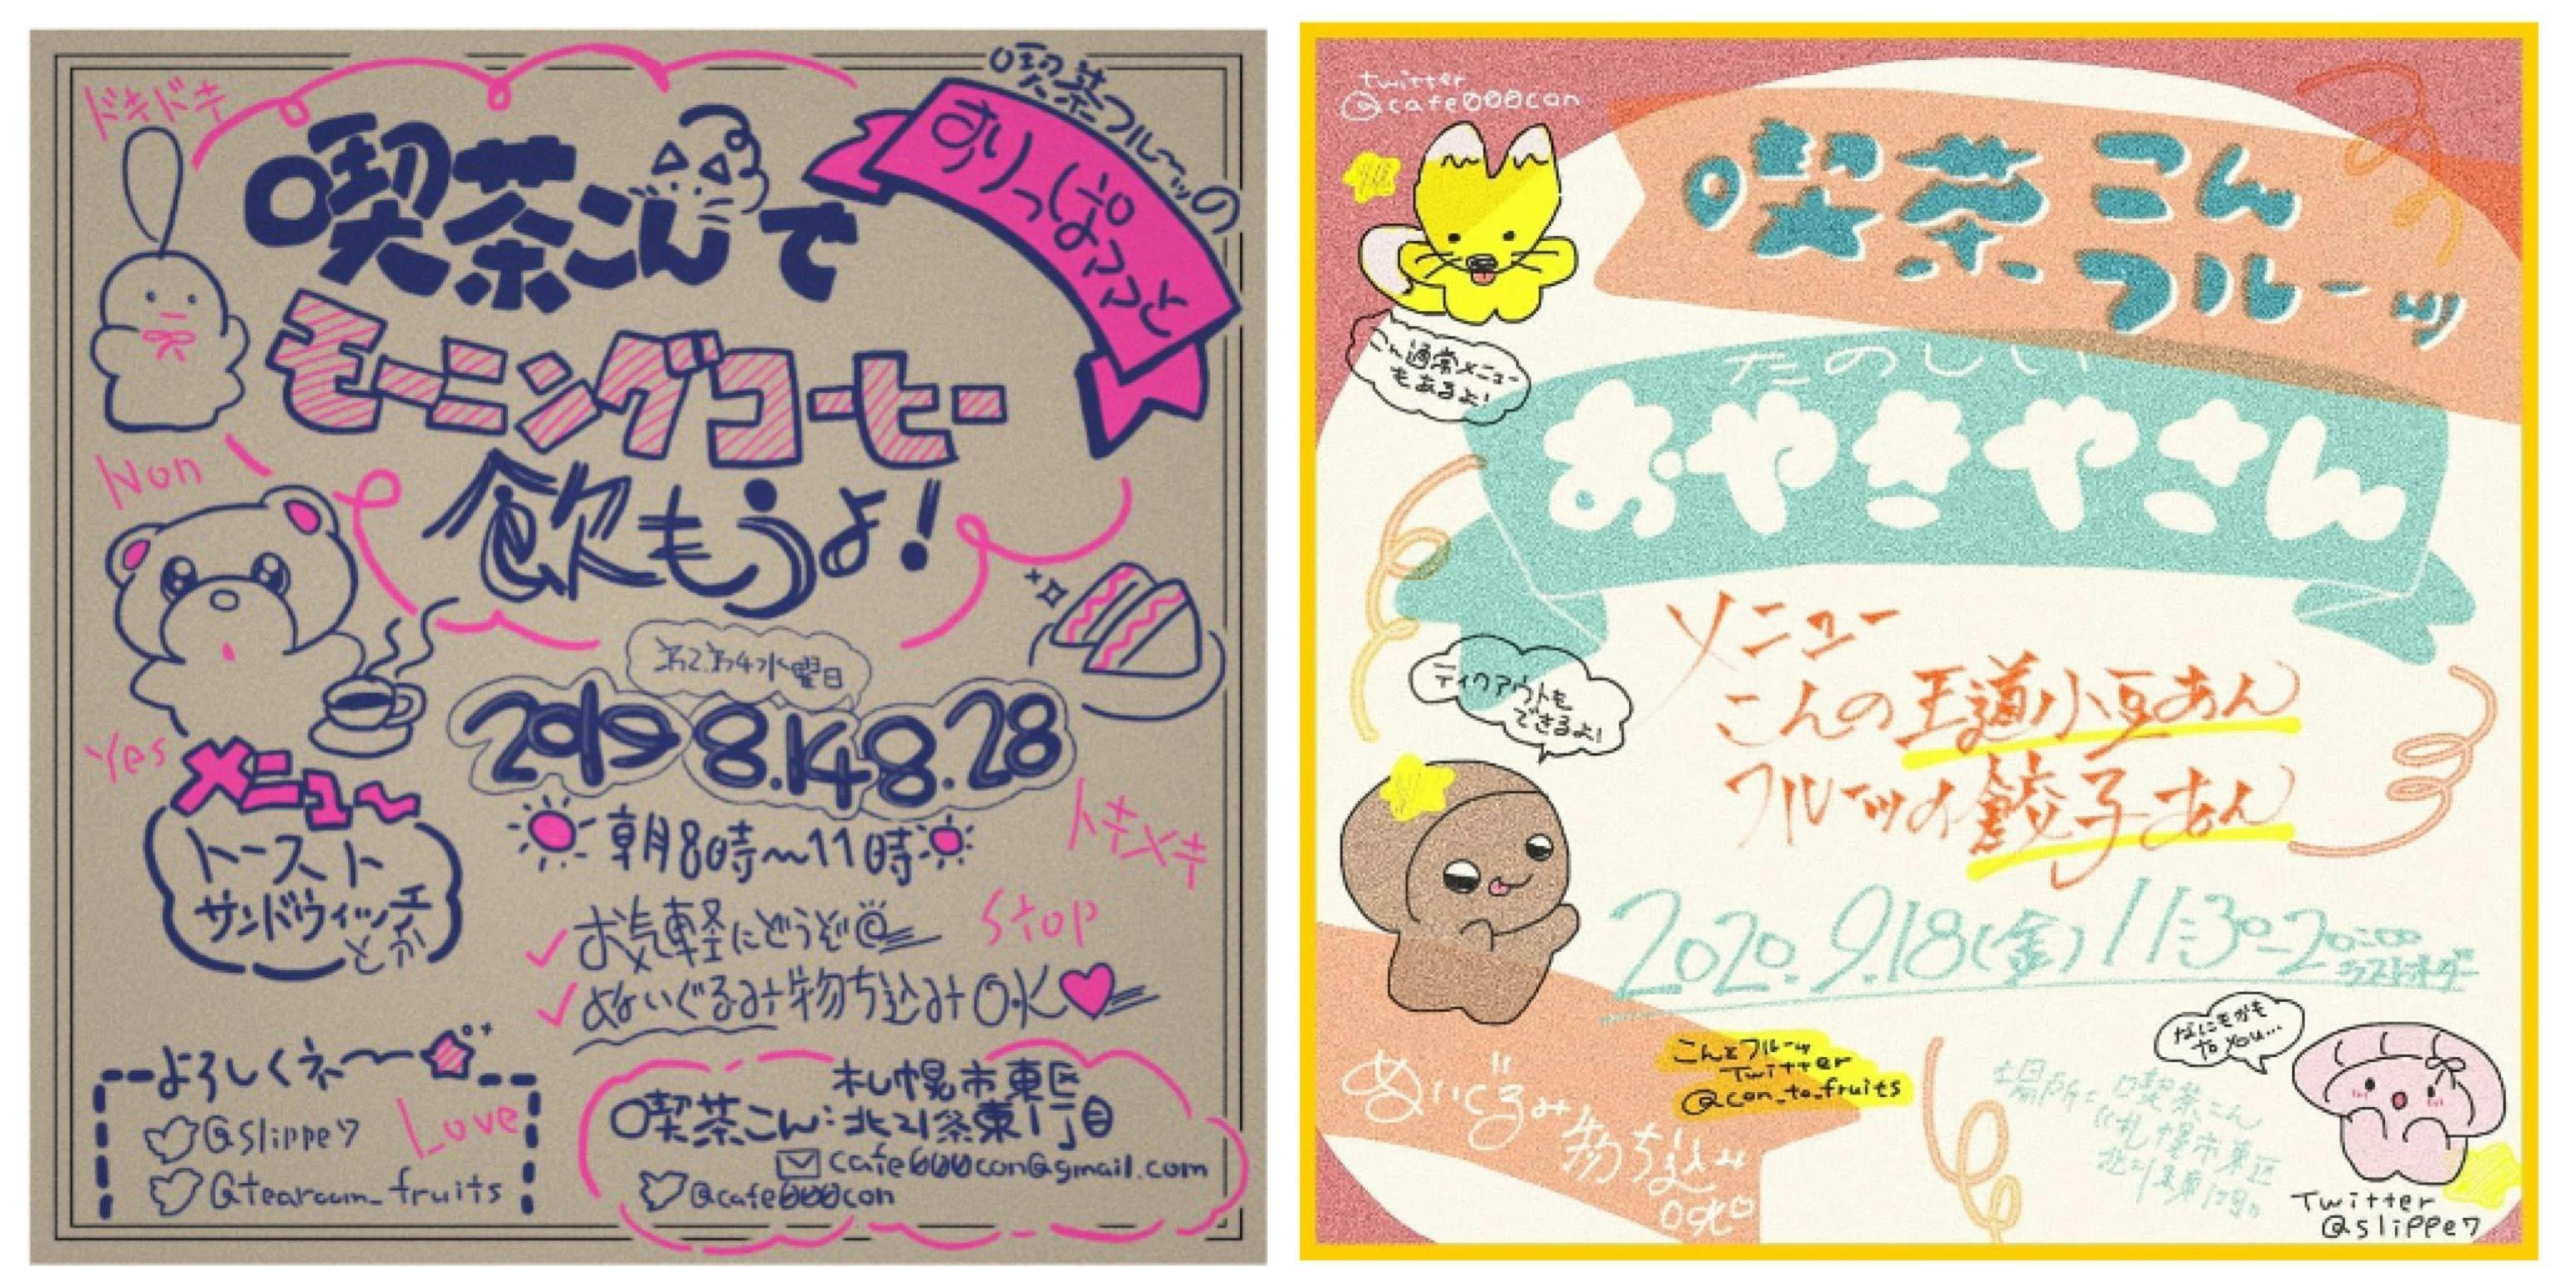 ドキドキ
喫茶フルーツの
すりっぱこと
喫茶こんで
モーニングコーヒー
飲もうよ!
Non
Yes
第2.第4水曜日
2019 8.14 8.28
朝8時〜11時
メニュ〜
トースト
サンドウィッチ
とか
トキメキ
Stop
お気軽にどうぞ
ぬいぐるみ持ち込みOK
よろしくネ〜
@slippe7
Love
@tearoom_fruits
札幌市東区
喫茶こん:北21条東1丁目
cafe000con@gmail.com
@cafe000con
twitter
@cafe000con
喫茶こん
フルーツ
こん通常メニュー
もあるよ!
たのしい
おやきやさん
メニュー
こんの王道小豆あん
フルーツの餃子あん
テイクアウトも
できるよ!
2020.9.18(金)11:30-20:00
ラストオーダー
こんとフルーツ
Twitter
@con_to_fruits
ぬいぐるみ持ち込み
OK
なにもかも
to you...
場所=喫茶こん
札幌市東区
北21条東1丁目
Twitter
@slippe7